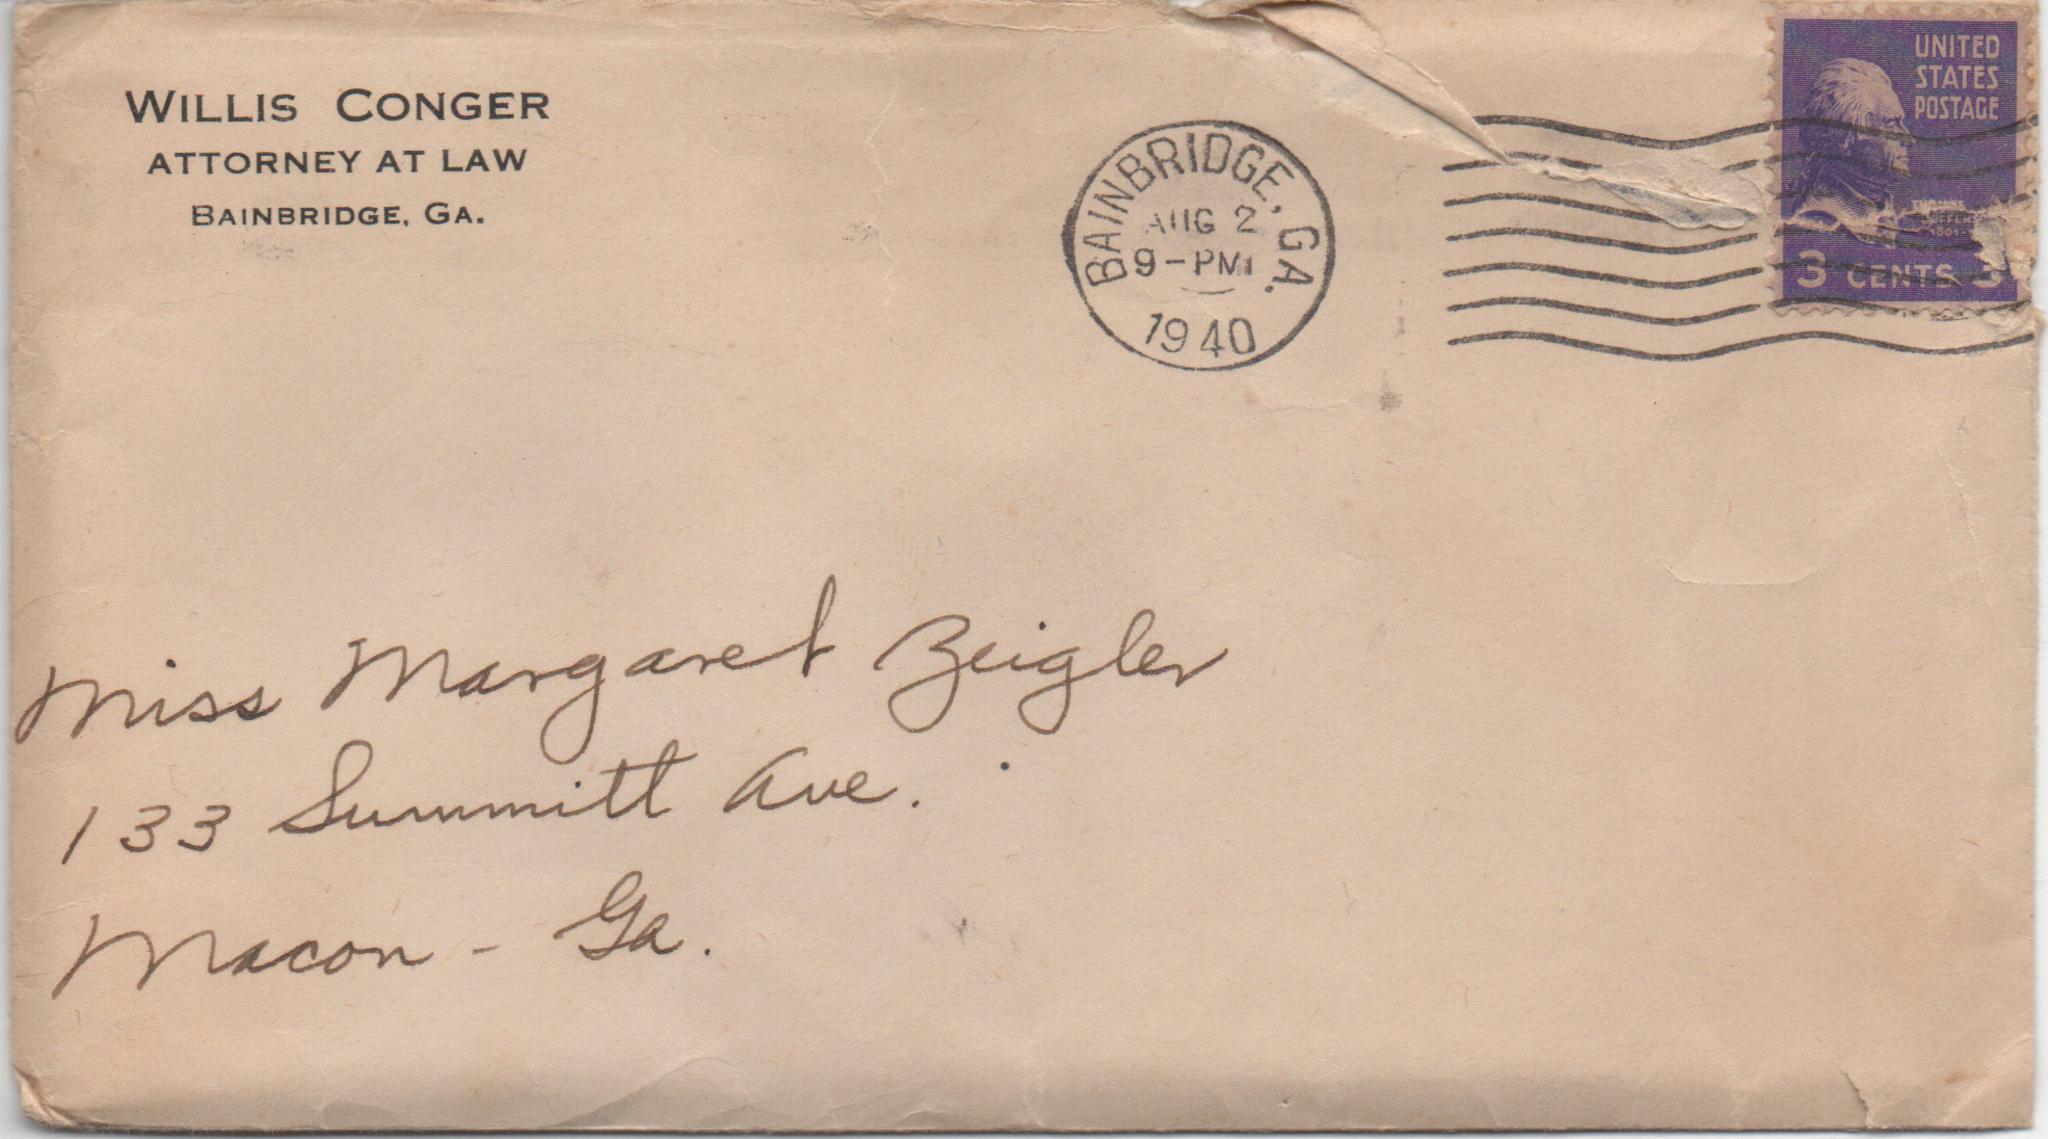 WILLIS CONGER
ATTORNEY AT LAW
BAINBRIDGE, GA.
BAINBRIDGE, GA.
AUG 2
9-PM
1940
UNITED
STATES
POSTAGE
3 CENTS 3
Miss Margaret Zeigler
133 Summitt Ave.
Macon - Ga.